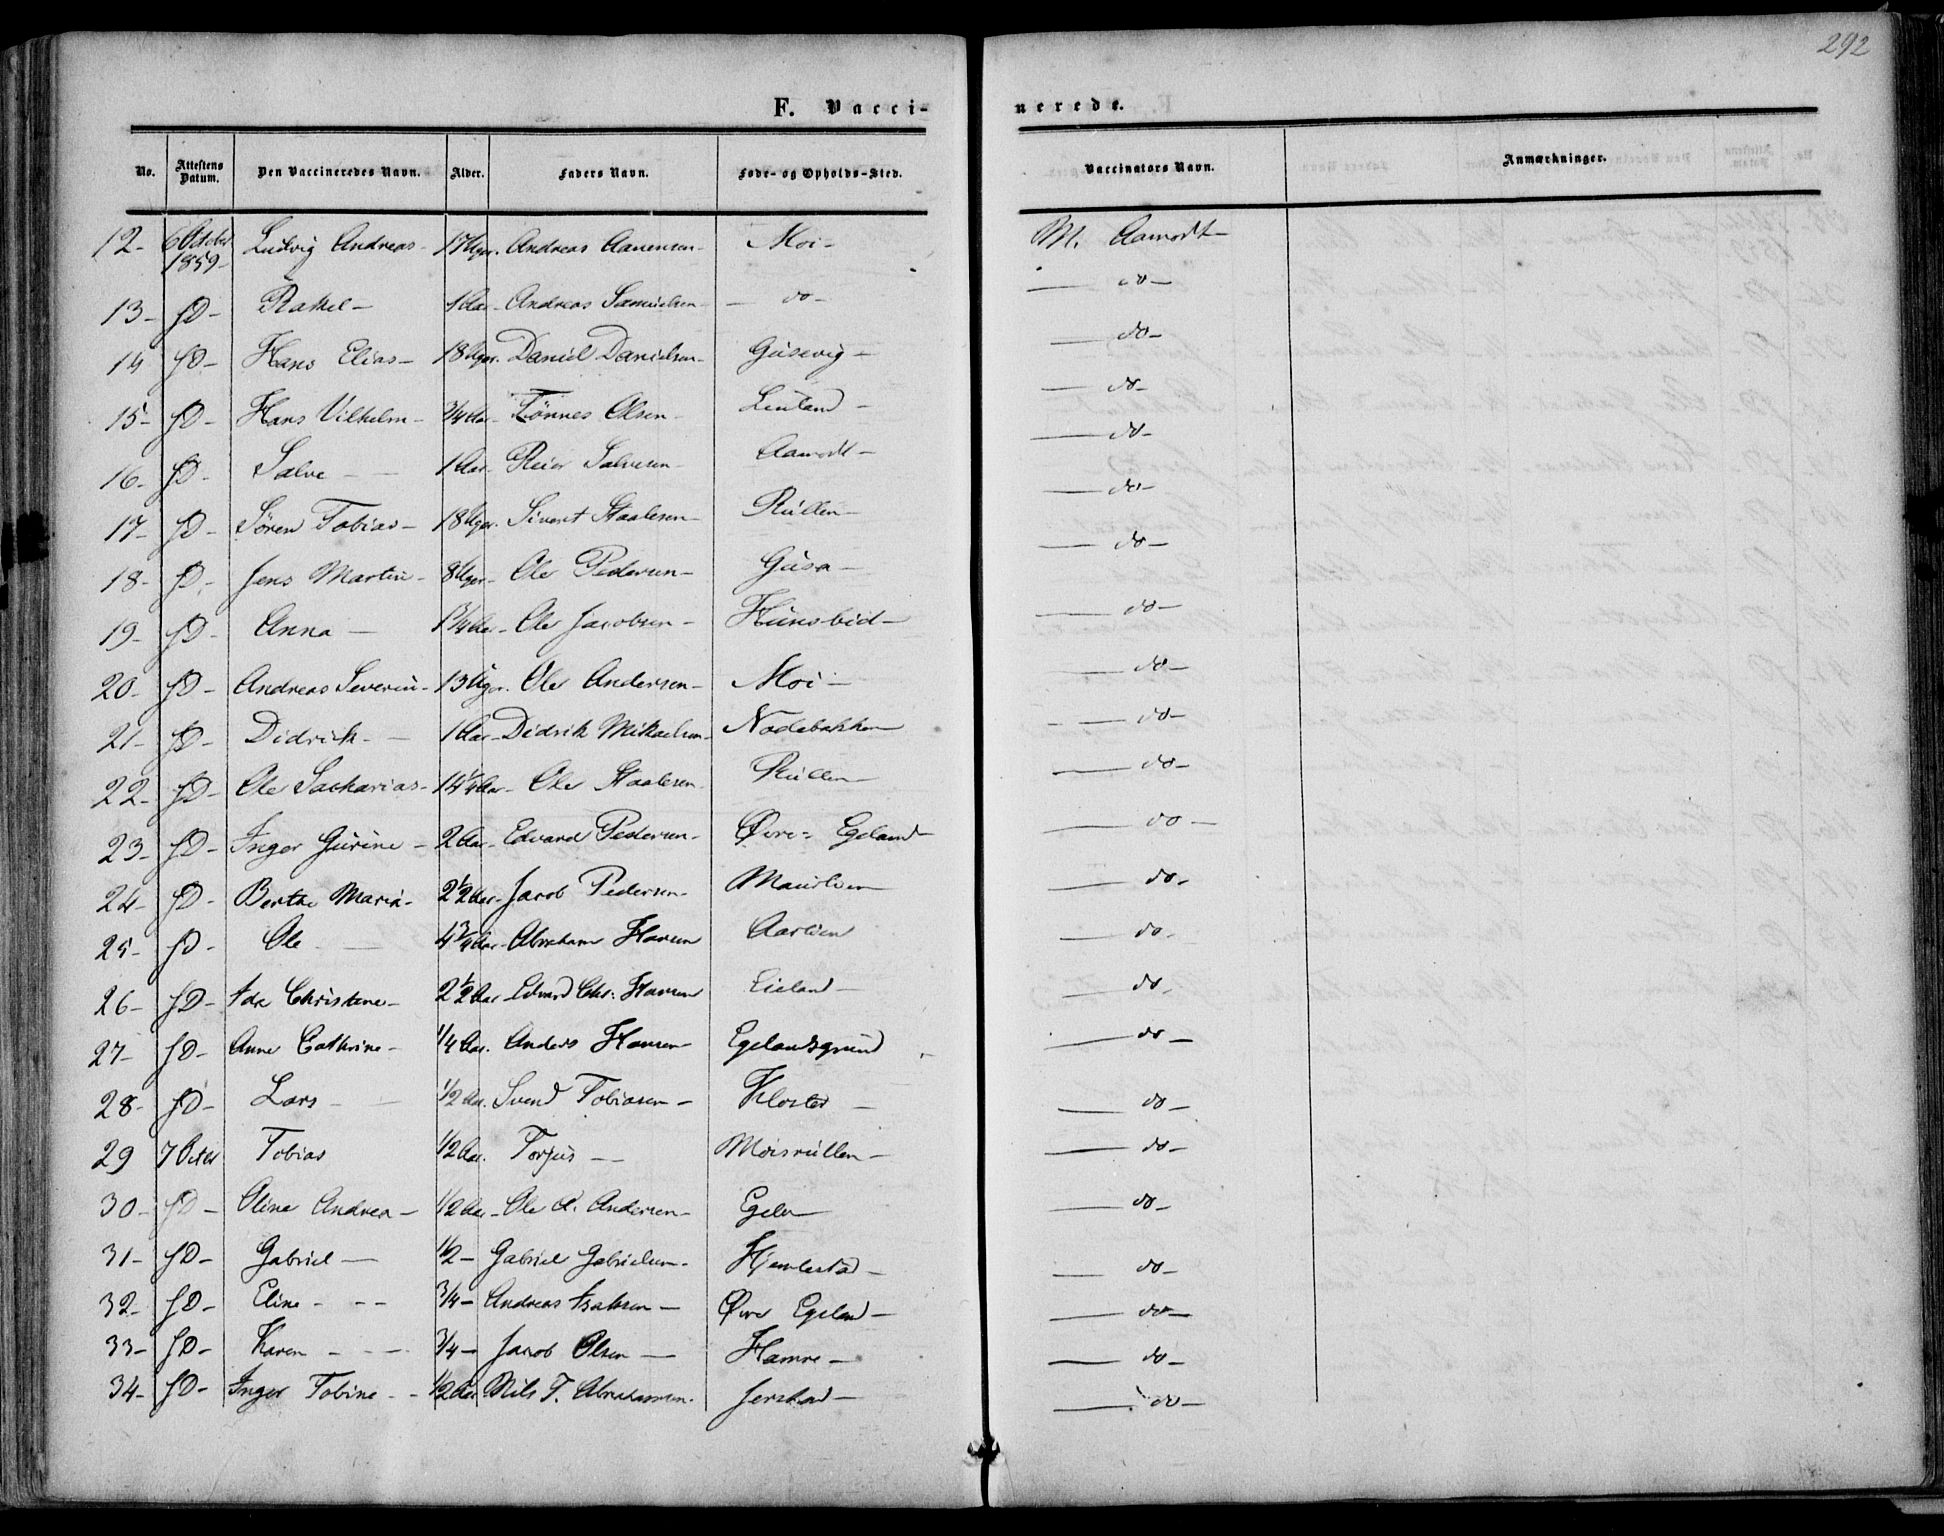 292
F. Vacci-
nerede.
No. Attestens Datum. Den Vaccineredes Navn. Alder. Faders Navn. Føde- og Opholds-Sted. Vaccinators Navn. Anmærkninger.
12- 6 October 1859- Ludvig Andreas- 17 Uger. Andreas Aanensen- Moi- M. Aamodt-
13- fD- Rakel- 1 Aar- Andreas Samuelsen- - do- - do-
14 fD- Hans Elias- 18 Uger. Daniel Danielsen- Gusevig- - do-
15- fD- Hans Vilhelm- 3/4 Aar- Tønnes Olsen- Leuland- - do-
16- fD- Salve- 1 Aar- Reier Salvesen- Aamodt- - do-
17- fD- Søren Tobias- 18 Uger. Sivert Staalesen- Rullen- - do-
18- fD- Jens Martin- 8 Uger- Ole Pedersen- Gusa- - do-
19- fD- Anna- 1 3/4 Aar- Ole Jacobsen- - do-
20- fD- Andreas Severin- 13 Uger. Ole Andersen- Moi- - do-
21- fD- Didrik- 1 Aar- Didrik Mikaelsen- Nodebakken - do-
22- fD- Ole Sacharias- 14 1/4 Aar- Ole Staalesen- Rullen- - do-
23- fD- Inger Gurine- 2 Aar- Edvard Pedersen- Øvre- Egeland- - do-
24- fD- Berthe Maria- 2 1/2 Aar- Jacob Pedersen- - do-
25- fD- Ole- 4 3/4 Aar- Abraham Hansen Aarlien - do-
26- fD- Ida Christine- 2 1/2 Aar- Edvard Chr. Hansen Eieland- - do-
27- fD- Anne Cathrine- 1/4 Aar. Anders Hansen- Egelandsgrund - do-
28- fD- Lars- 1/2 Aar. Svend Tobiasen- Kloster- - do-
29 7 Octbr Tobias 1/2 Aar. Torjus- Moisrullen- - do-
30- fD- Oline Andrea- 1/2 Aar- Ole A. Andersen- - do-
31- fD- Gabriel- 1/2- Gabriel Gabrielsen- Hjemlestad- - do-
32- fD- Eline- 3/4- Andreas Isaksen- Øvre Egeland- - do-
33- fD- Karen- 3/4- Jacob Olsen- Hamre- - do-
34- fD- Inger Tobine- 1/2 Aar Nils T. Abrahamsen. Jerstad- - do-